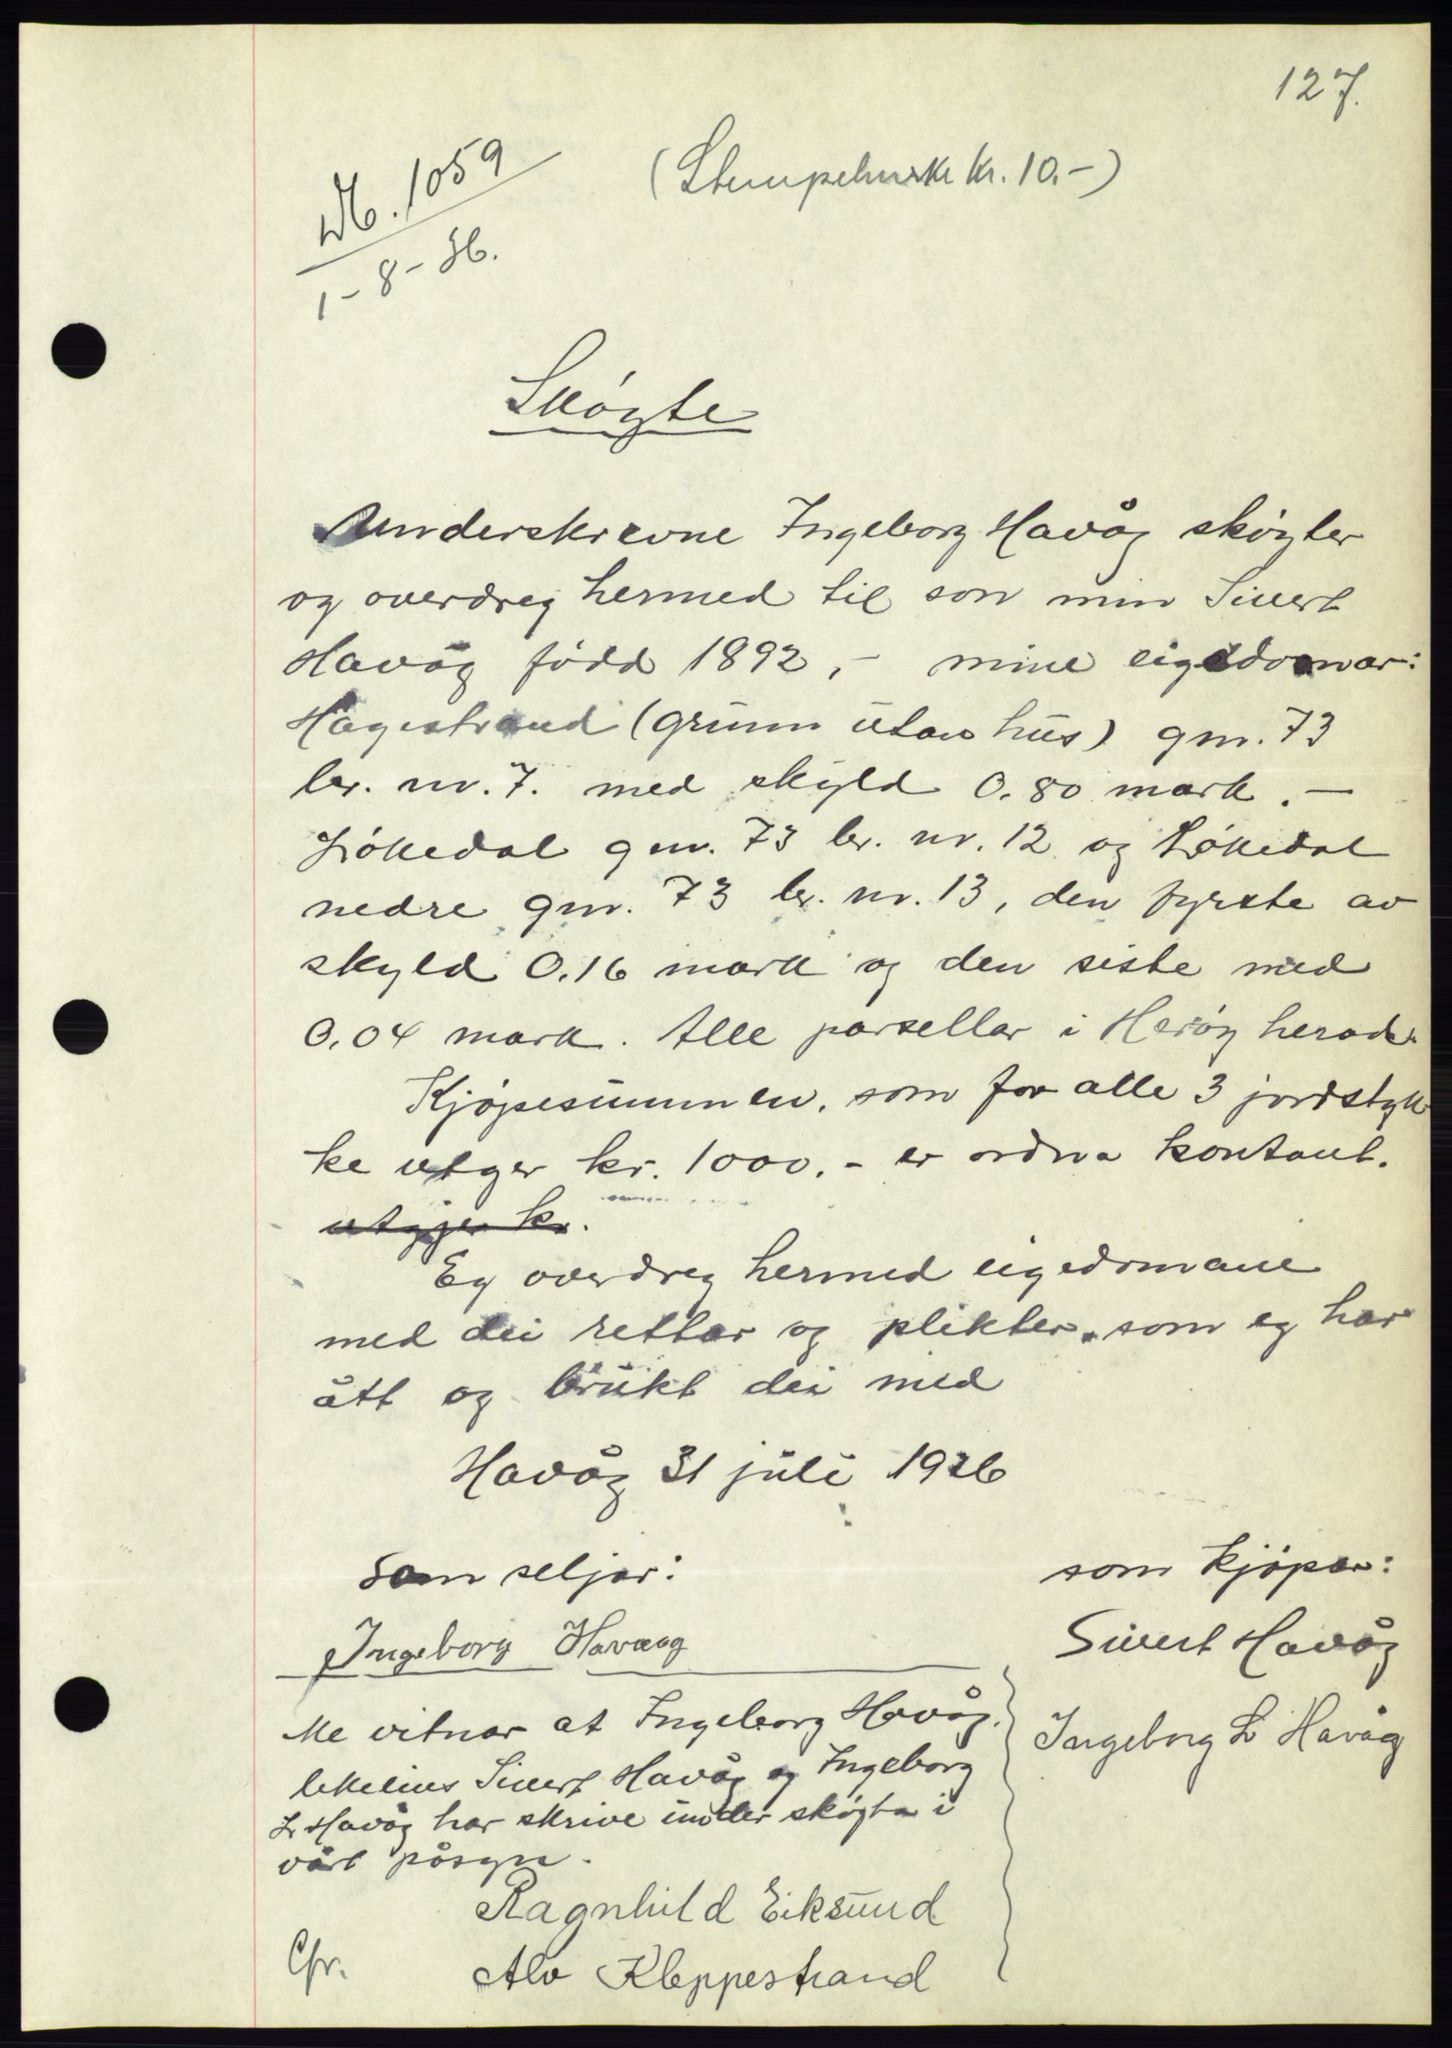 127.
(Stempelmerke kr. 10.-)
Nr. 1059
1-8-36.
Skøyte
Underskrevne Ingeborg Havåg skøyter
og overdreg hermed til son min Sivert
Havåg født 1892, - mine eigedomar:
Hagestrand (grunn utan hus) gnr. 73
br. nr. 7. med skyld 0.80 mark. -
Løkedal gnr. 73 br. nr. 12 og Løkedal
nedre gnr. 73 br. nr. 13, den fyrste av
skyld 0.16 mark og den siste med
0,04 mark. Alle parsellar i Herøy herad.
Kjøpesummen, som for alle 3 jordstyk
ke utger kr. 1000.- er ordna kontant.
utgjer kr.
Eg overdreg hermed eigedomane
med dei rettar og plikter, som eg har
ått og brukt dei med
Havåg 31 juli 1936
Som seljar:
som kjøpar:
Ingeborg Havaag
Sivert Havåg
Me vitnar at Ingeborg Havåg,
Ingeborg L Havåg
Sivert Havåg og Ingeborg
L Havåg har skrive under skøyta i
vårt påsyn.
Ragnhild Eiksund
Cfr.
Alv Kleppestrand